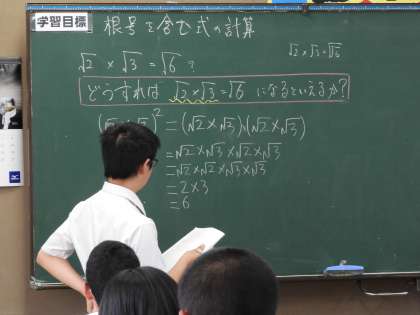 学習目標
根号を含む式の計算
√2×√3=√6
√2 × √3 = √6 ?
どうすれば √2×√3=√6 になるといえるか?
(√2×√3)² = (√2×√3)×(√2×√3)
= √2×√3×√2×√3
= √2×√2×√3×√3
= 2×3
= 6